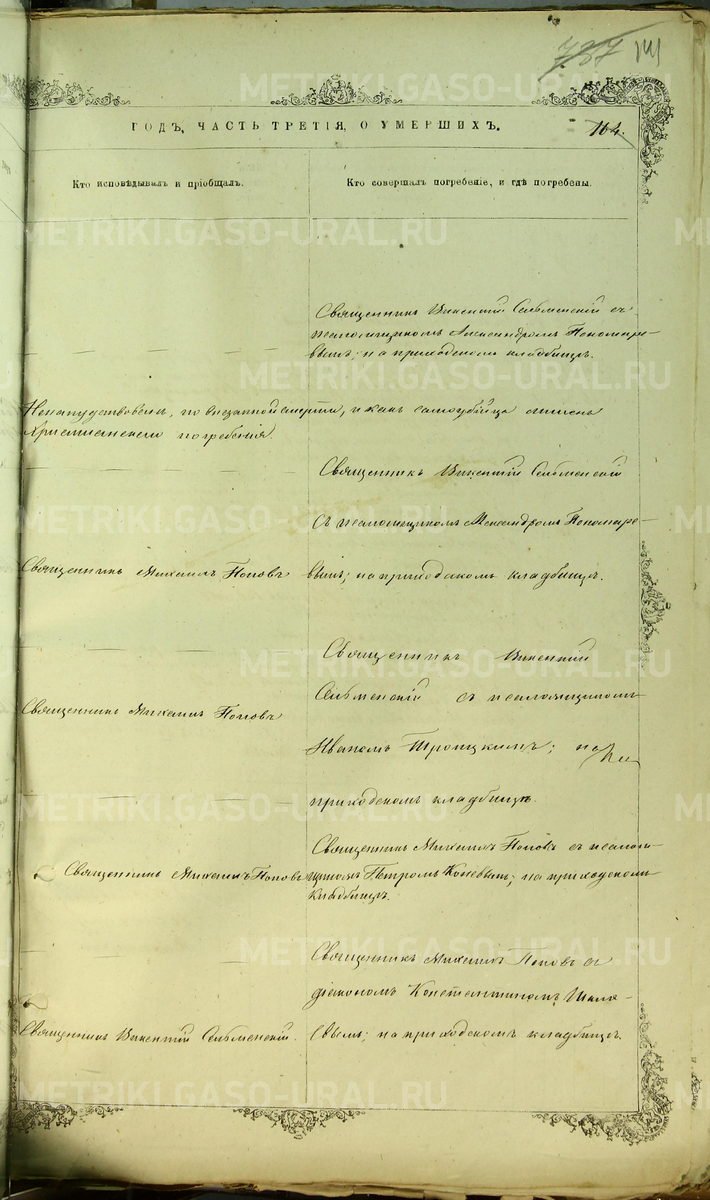 737 141
ГОДЪ, ЧАСТЬ ТРЕТІЯ, О УМЕРШИХЪ.
164.
Кто исповѣдывалъ и пріобщалъ.
Кто совершалъ погребеніе, и гдѣ погребены.
Священникъ Викентій Сельменскій съ
псаломщикомъ Александромъ Пономаре-
вымъ; на приходскомъ кладбищѣ.
Ненапутствованъ, по внезапной смерти, и какъ самоубійца лишенъ
Христіанскаго погребенія.
Священникъ Викентій Сельменскій
съ псаломщикомъ Александромъ Пономаре-
Священникъ Михаилъ Поповъ
вымъ; на приходскомъ кладбищѣ.
Священникъ Викентій
Сельменскій съ псаломщикомъ
Священникъ Михаилъ Поповъ
Иваномъ Троицкимъ; на
приходскомъ кладбищѣ.
Священникъ Михаилъ Поповъ съ псалом-
Священникъ Михаилъ Поповъ
щикомъ Петромъ Коневымъ; на приходскомъ
кладбищѣ.
Священникъ Михаилъ Поповъ съ
діакономъ Константиномъ
Священникъ Викентій Сельменскій.
вымъ; на приходскомъ кладбищѣ.
METRIKI.GASO-URAL.RU